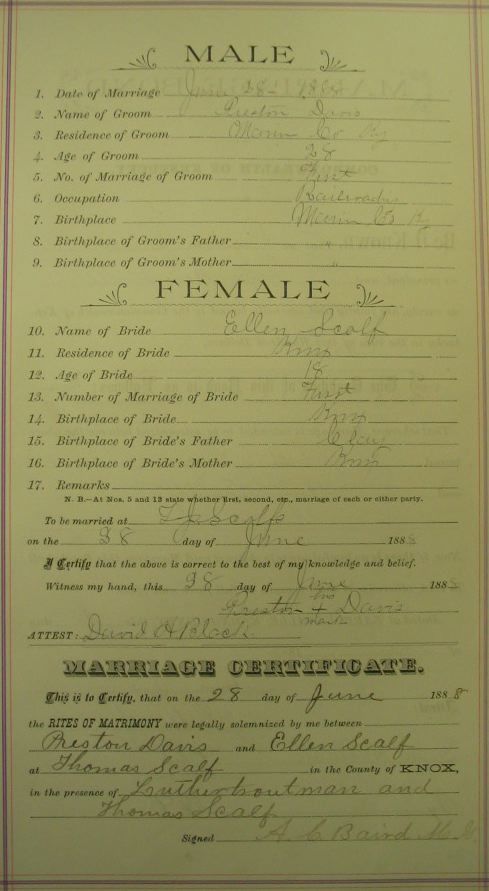 MALE
1. Date of Marriage June 28- 1888
2. Name of Groom Preston Davis
3. Residence of Groom Co Ky
4. Age of Groom 28
5. No. of Marriage of Groom First
6. Occupation
7. Birthplace Co Ky
8. Birthplace of Groom's Father "
9. Birthplace of Groom's Mother "
FEMALE
10. Name of Bride Ellen Scalf
11. Residence of Bride Knox
12. Age of Bride 18
13. Number of Marriage of Bride First
14. Birthplace of Bride Knox
15. Birthplace of Bride's Father Clay
16. Birthplace of Bride's Mother Knox
17. Remarks
N. B.—At Nos. 5 and 13 state whether first, second, etc., marriage of each or either party.
To be married at Scalfs
on the 28 day of June 1888
I Certify that the above is correct to the best of my knowledge and belief.
Witness my hand, this 28 day of June 1888
his
Preston + Davis
mark
ATTEST: David H Black
MARRIAGE CERTIFICATE.
This is to Certify, that on the 28 day of June 1888
the RITES OF MATRIMONY were legally solemnized by me between
Preston Davis and Ellen Scalf
at Thomas Scalf in the County of KNOX,
in the presence of Luther and
Thomas Scalf
Signed A. C. Baird M. G.